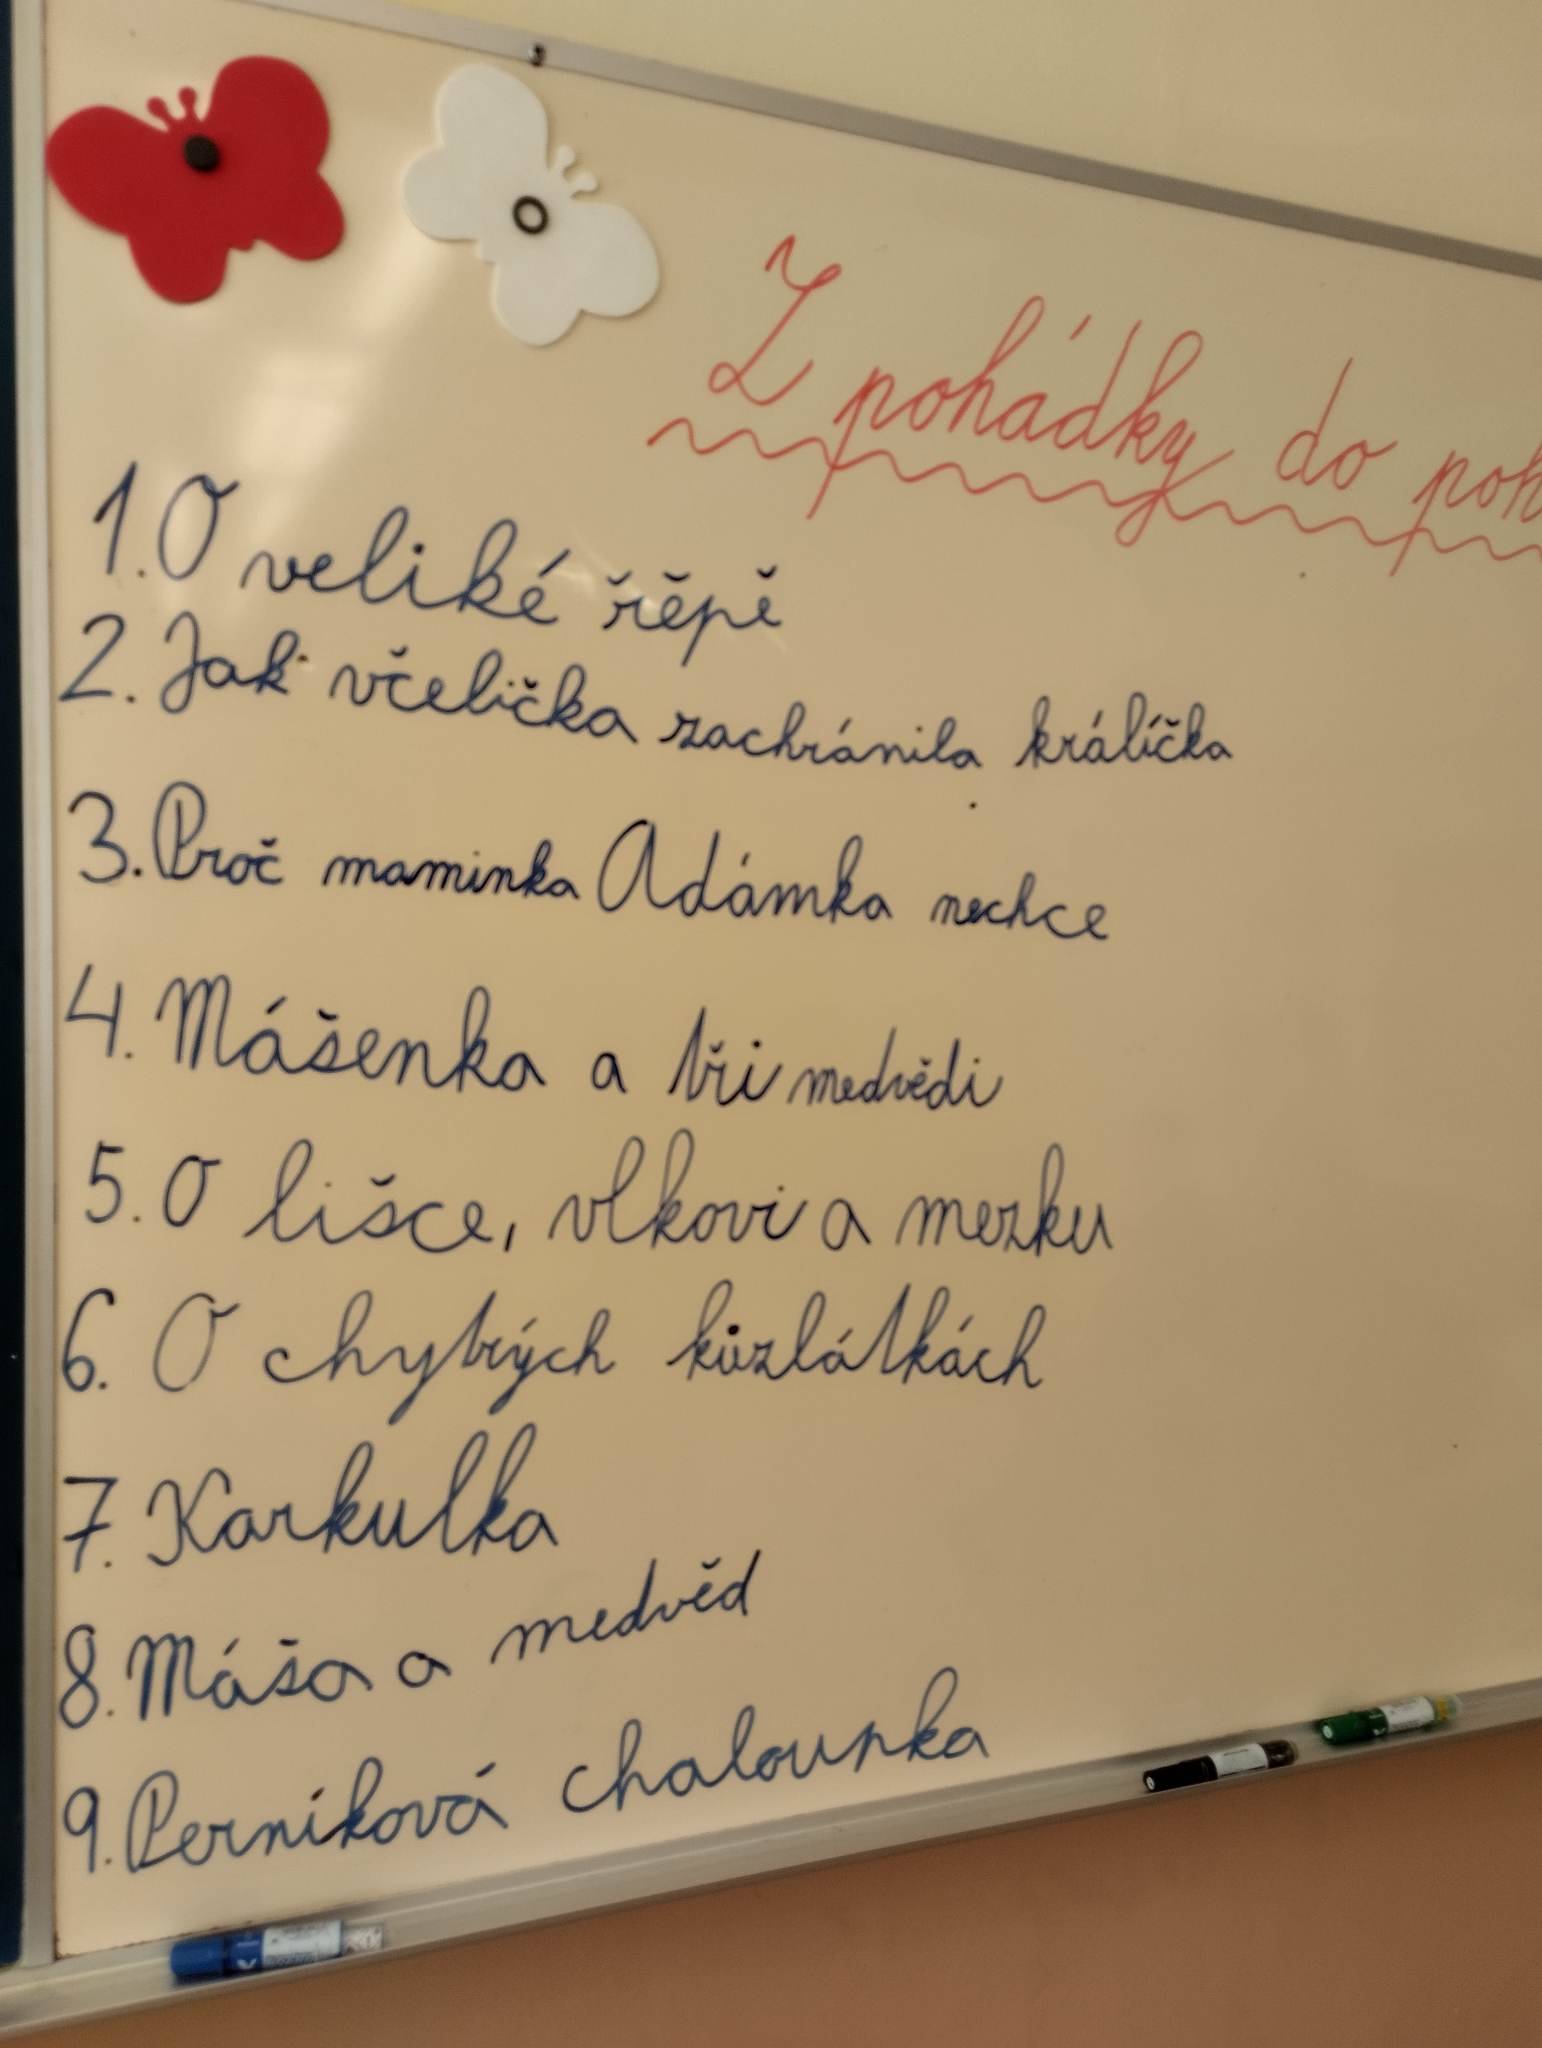 Z pohádky do poh
1. O veliké řěpě
2. Jak včelička zachránila králíčka
3. Proč maminka Adámka nechce
4. Mášenka a tři medvědi
5. O lišce, vlkovi a mezku
6. O chytrých kůzlátkách
7. Karkulka
8. Máša a medvěd
9. Perníková chaloupka